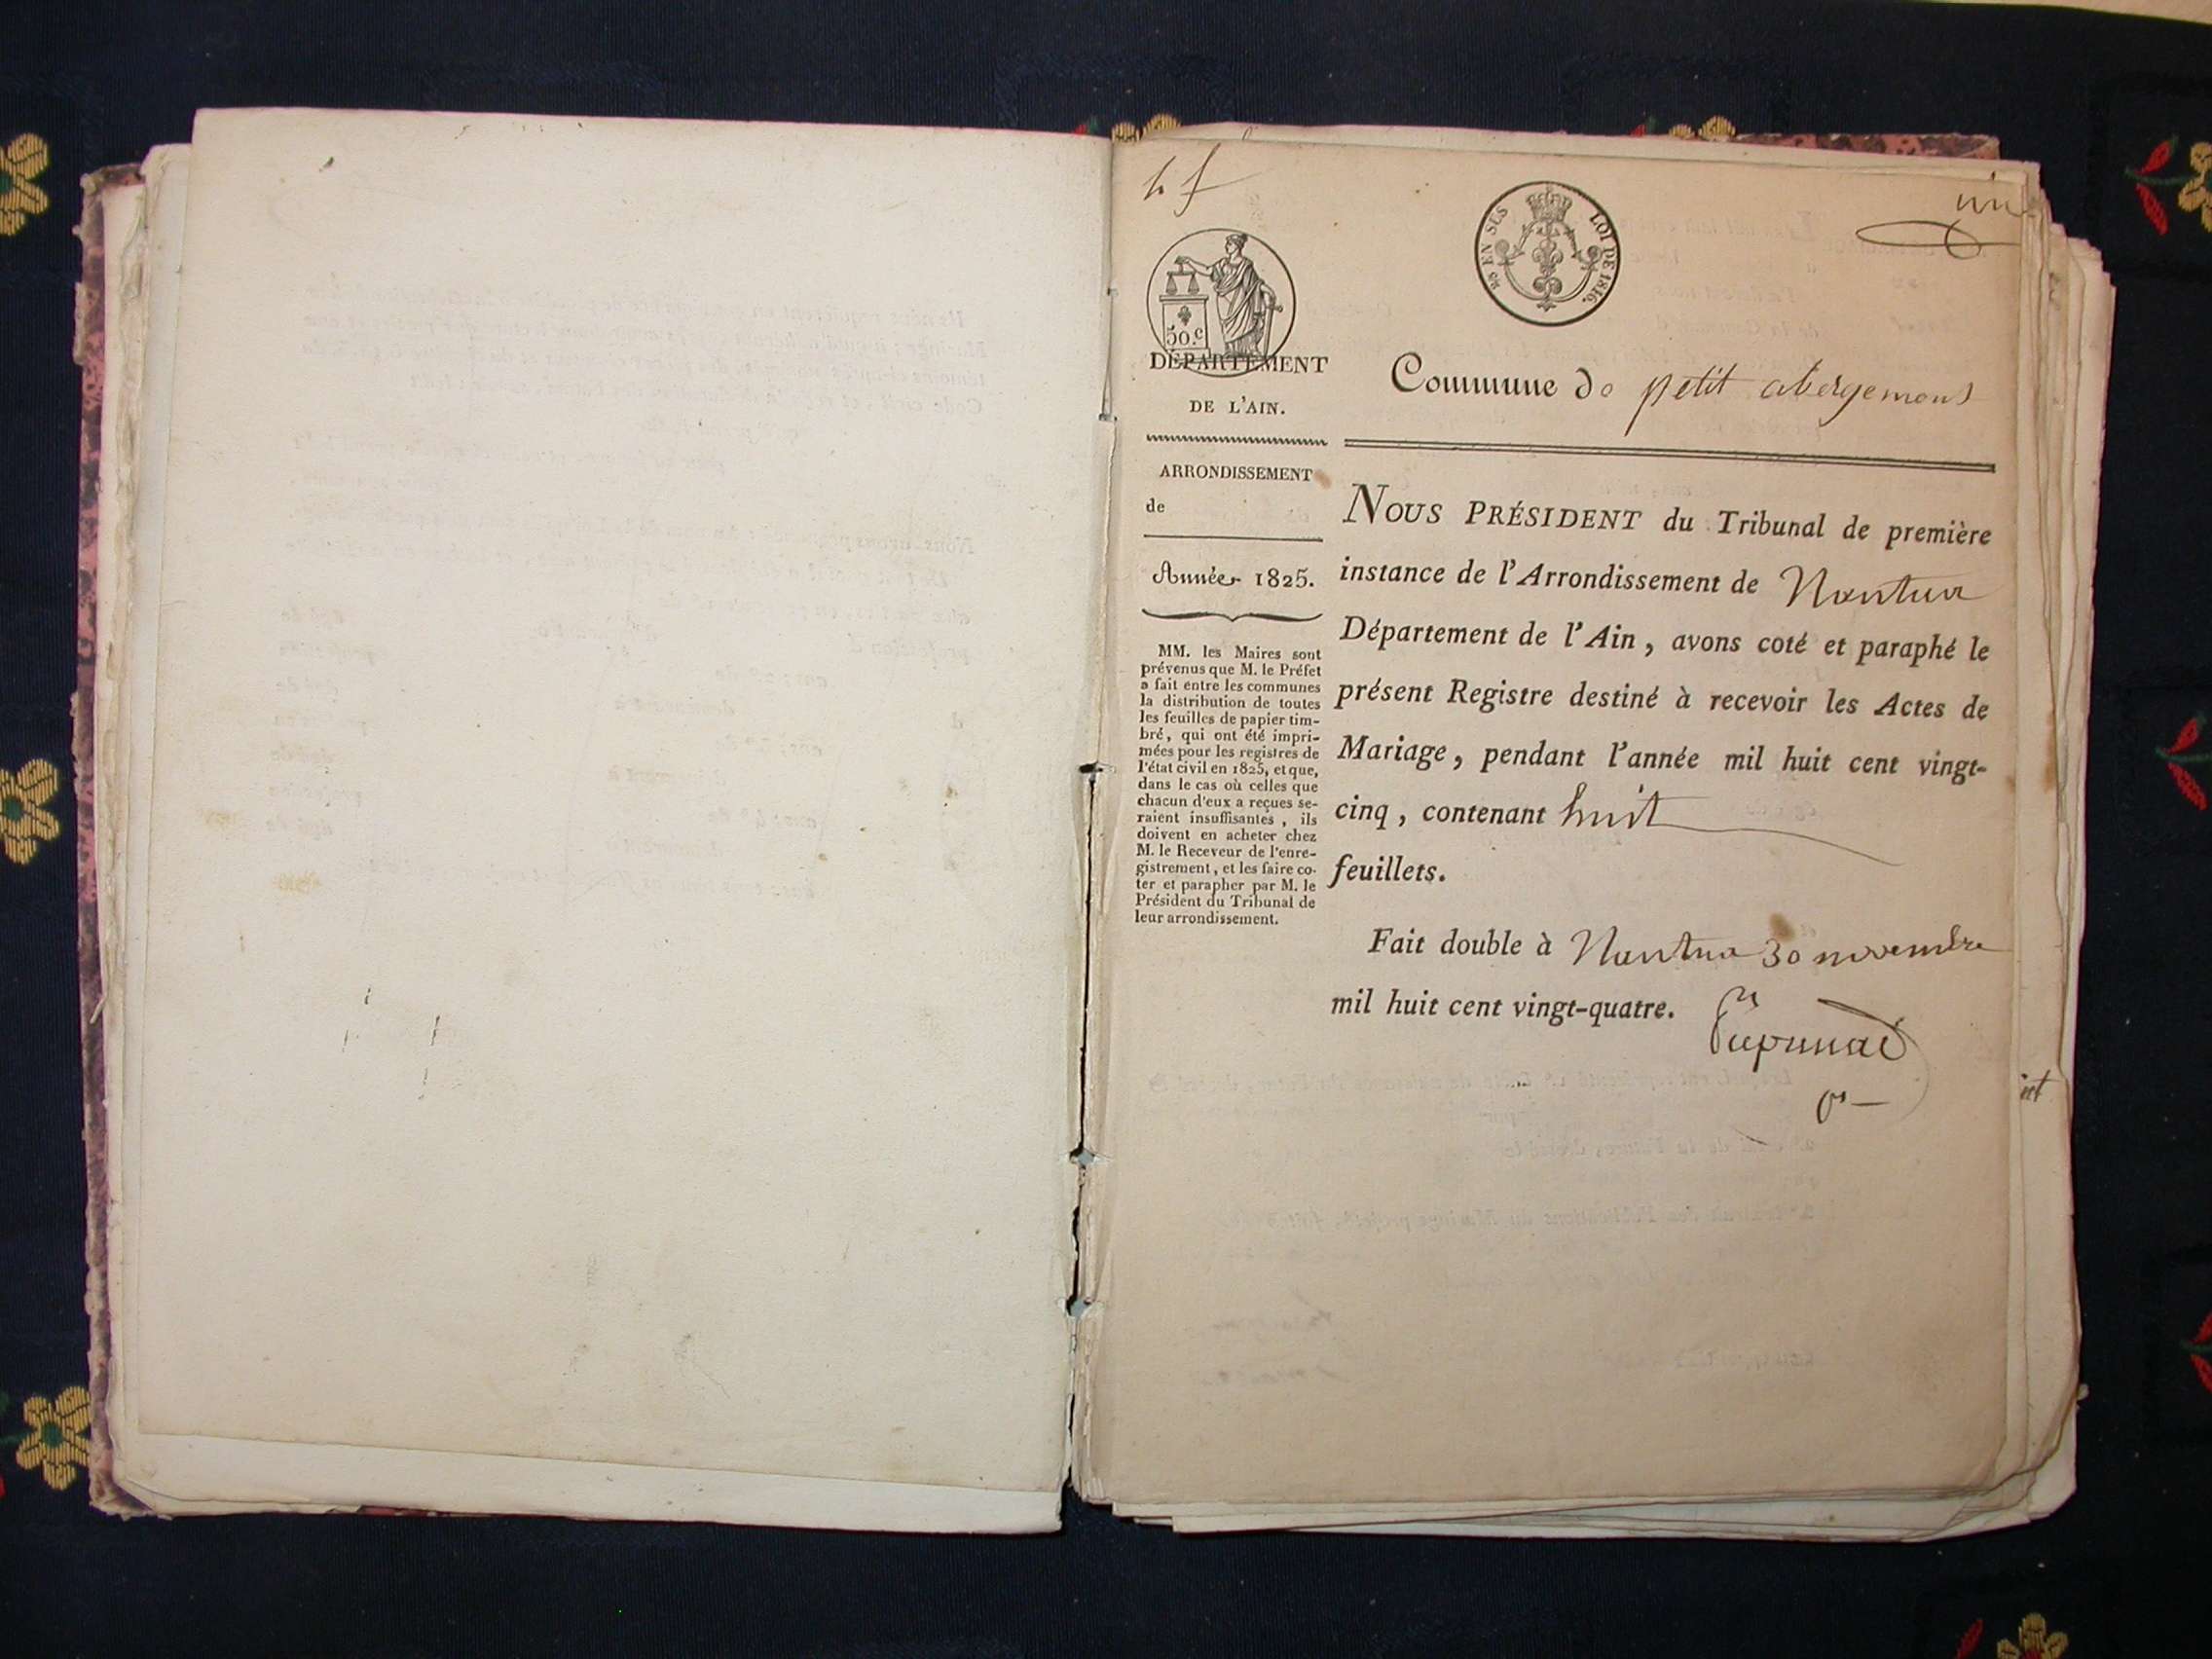 un
50.c
EN SUS
LOI DE 1816.
DÉPARTEMENT
DE L'AIN.
ARRONDISSEMENT
de
Année 1825.
MM. les Maires sont
prévenus que M. le Préfet
a fait entre les communes
la distribution de toutes
les feuilles de papier tim-
bré, qui ont été impri-
mées pour les registres de
l'état civil en 1825, et que,
dans le cas où celles que
chacun d'eux a reçues se-
raient insuffisantes, ils
doivent en acheter chez
M. le Receveur de l'enre-
gistrement, et les faire co-
ter et parapher par M. le
Président du Tribunal de
leur arrondissement.
Commune de petit abergement
NOUS PRÉSIDENT du Tribunal de première
instance de l'Arrondissement de Nantua
Département de l'Ain, avons coté et paraphé le
présent Registre destiné à recevoir les Actes de
Mariage, pendant l'année mil huit cent vingt-
cinq, contenant huit
feuillets.
Fait double à Nantua 30 novembre
mil huit cent vingt-quatre.